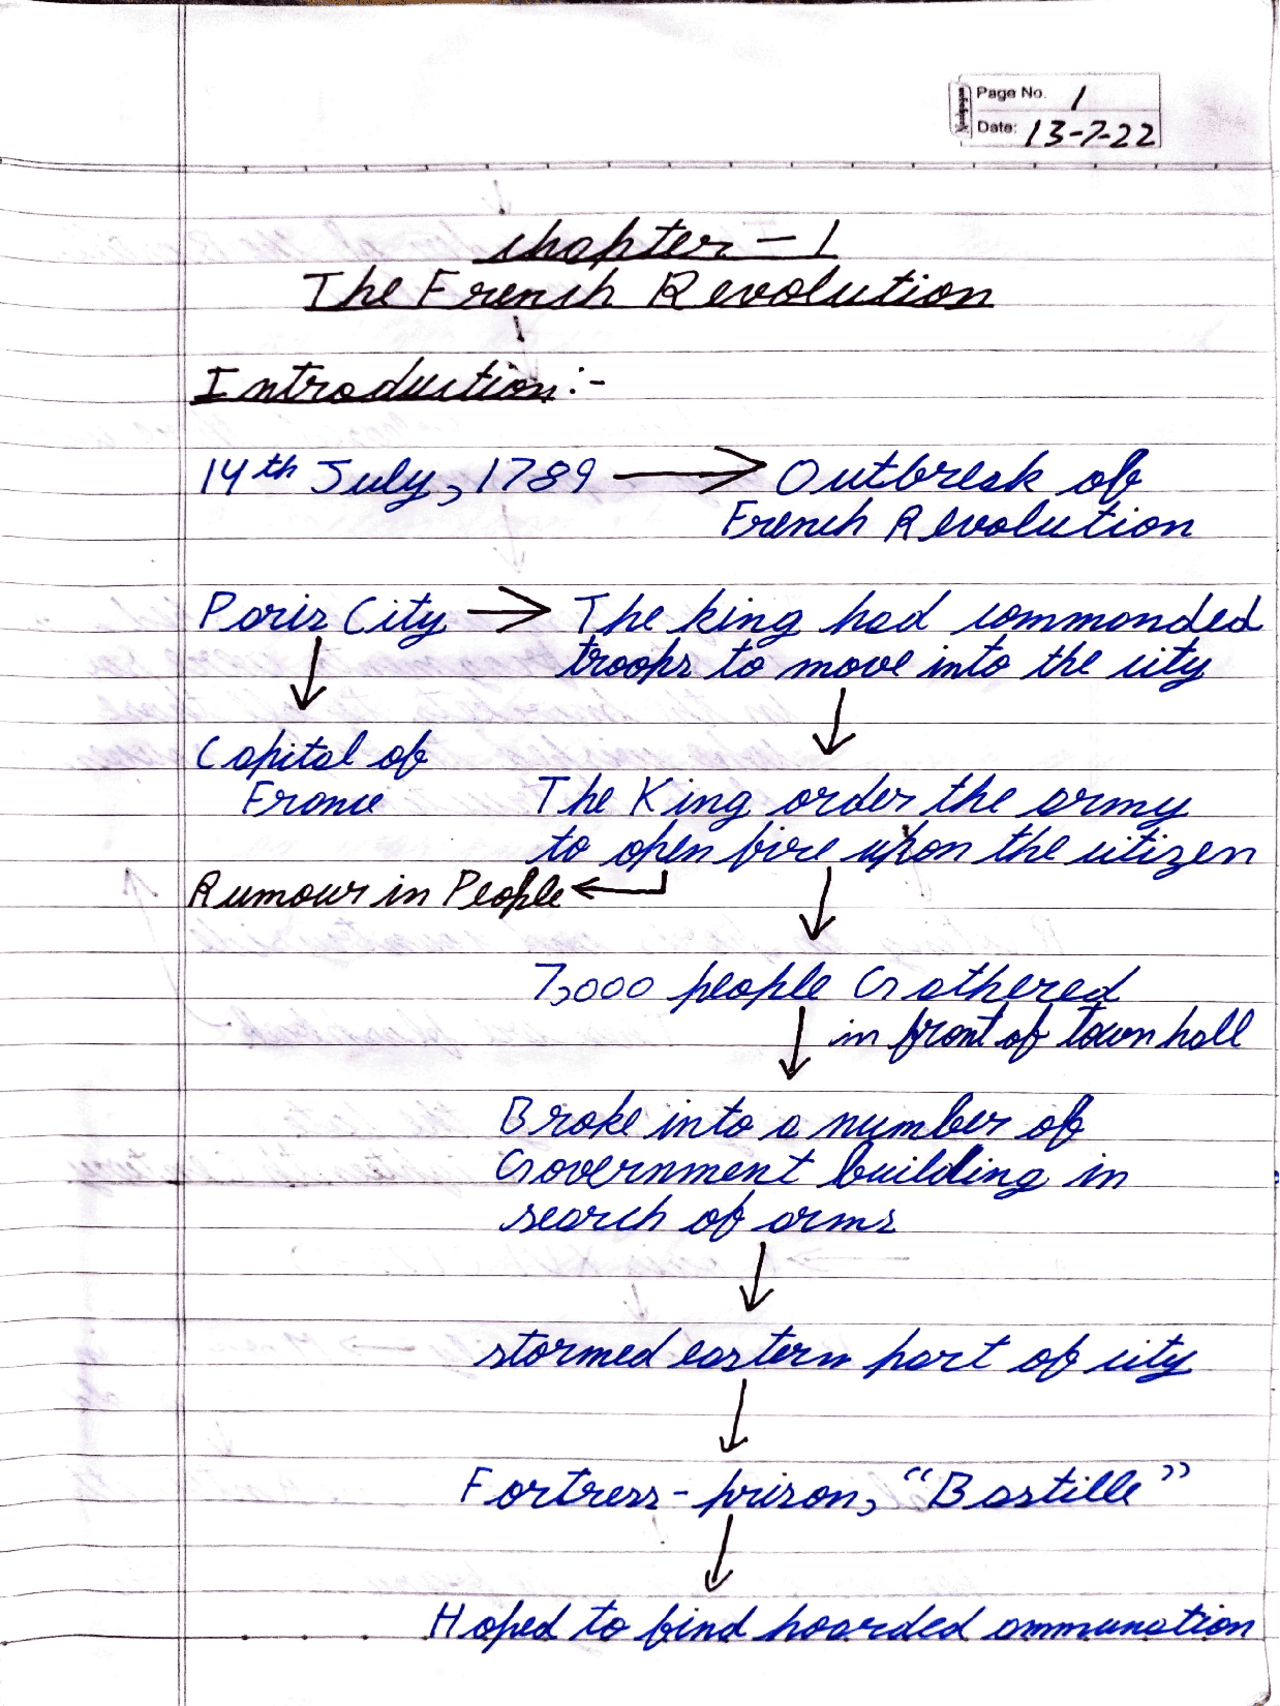 Page No. 1
Date: 13-7-22
Chapter - 1
The French Revolution
Introduction:-
14th July, 1789 → Outbreak of
French Revolution
Paris City → The king had commanded
troops to move into the city
Capital of
France
The King order the army
to open fire upon the citizen
Rumour in People ←
7,000 people Gathered
in front of town hall
Broke into a number of
Government building in
search of arms
stormed eastern part of city
Fortress - prison, "Bastille"
Hoped to find hoarded ammunation